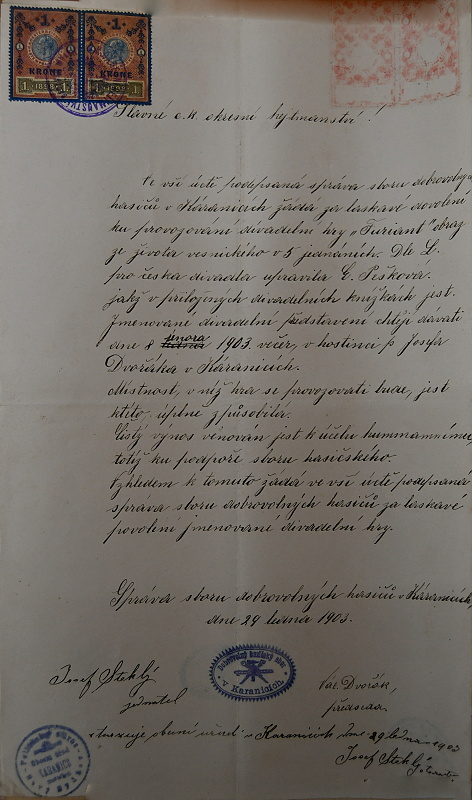 1 1
KRONE KRONE
1 1898 1 1 1898 1
Slavné c.k. okresní hejtmanství!
Ve vší úctě podepsaná správa sboru dobrovolných
hasičů v Káranicích žádá za laskavé dovolení
ku provozování divadelní hry „Furiant" obraz
ze života vesnického v 5 jednáních. Dle L.
pro česká divadla upravila E. Pešková.
jakž v přiložených divadelních knížkách jest.
Jmenované divadelní představení chtějí dávati
dne 8 února 1903 večer, v hostinci p. Josefa
Dvořáka v Káranicích.
Místnost, v níž hra se provozovati bude, jest
úplně způsobilá.
Čistý výnos věnován jest k účelu hummanímu,
totiž ku podpoře sboru hasičského.
Vzhledem k tomuto žádá ve vší úctě podepsaná
správa sboru dobrovolných hasičů za laskavé
povolení jmenované divadelní hry.
Správa sboru dobrovolných hasičů v Káranicích,
dne 29 ledna 1903.
Dobrovolný hasičský sbor
v Karanicích.
Josef Steklý
jednatel
Vác. Dvořák,
předseda
obecní úřad v Karanicích dne 29 ledna 1903
Josef Steklý
KARANICE